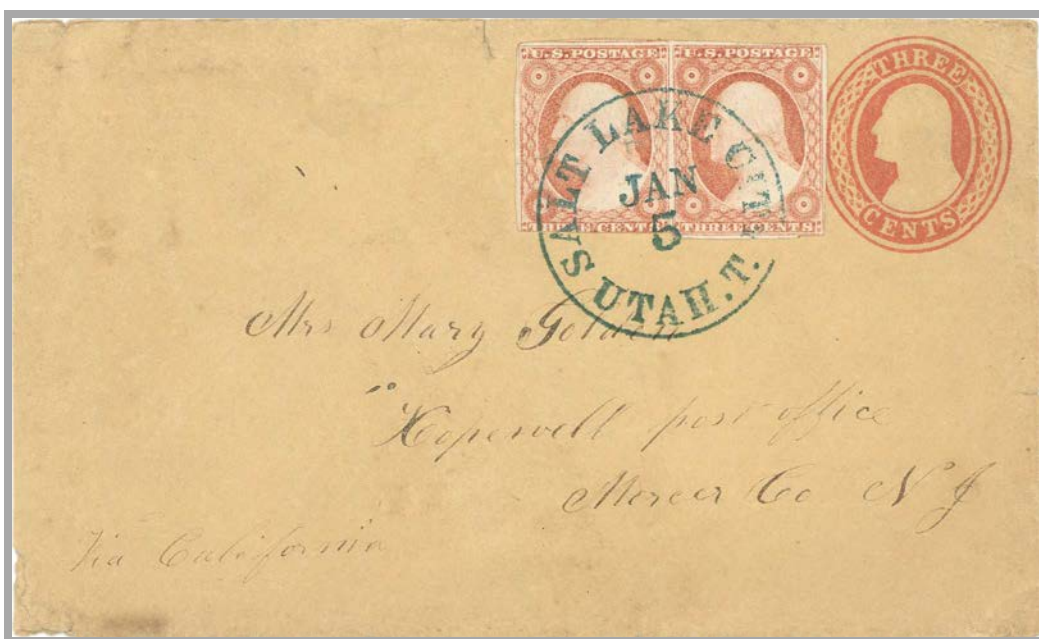 U.S. POSTAGE U.S. POSTAGE
THREE CENTS THREE CENTS
THREE
CENTS
SALT LAKE CITY
JAN
5
UTAH. T.
Mrs Mary Golden
Hopewell post office
Mercer Co N J
Via California